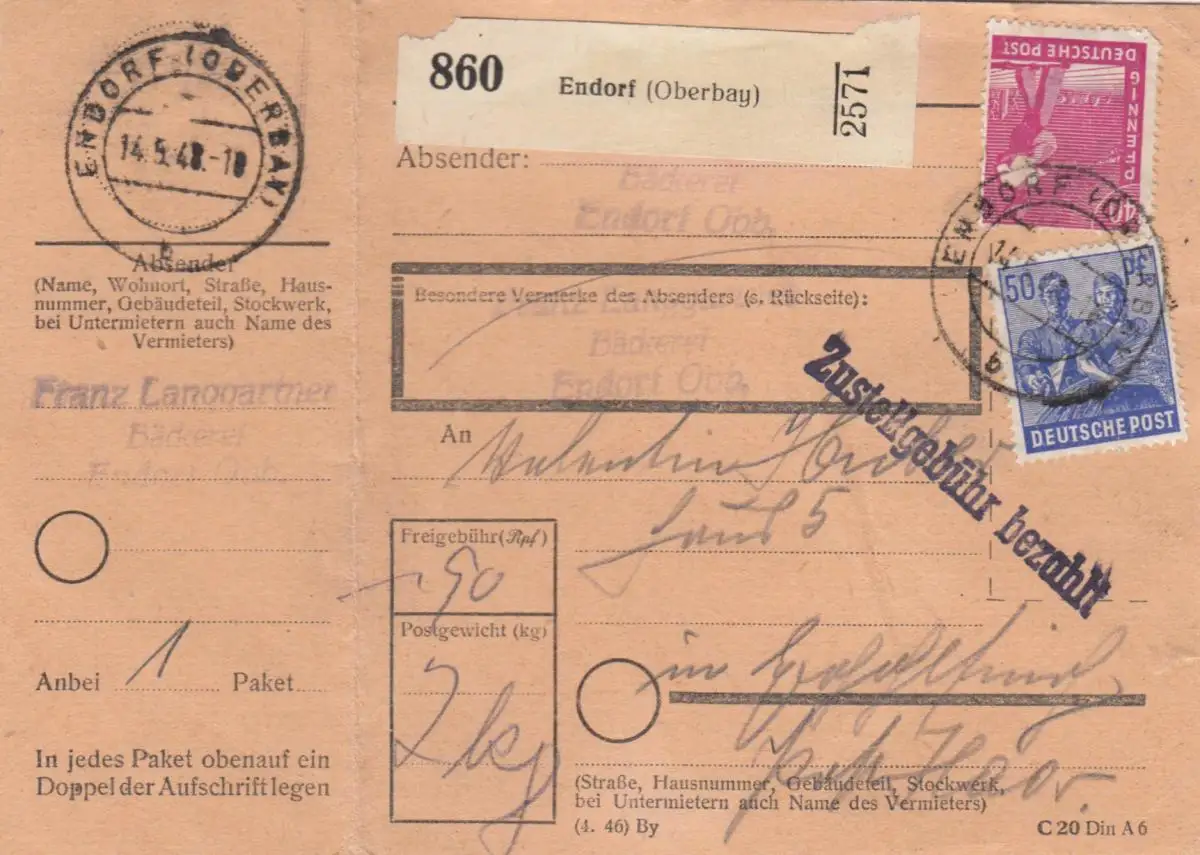 ENDORF (OBERBAY)
14.5.48.-18
a
Absender
(Name, Wohnort, Straße, Haus-
nummer, Gebäudeteil, Stockwerk,
bei Untermietern auch Name des
Vermieters)
Franz Langgartner
Bäckerei
Endorf Obb.
Anbei 1 Paket
In jedes Paket obenauf ein
Doppel der Aufschrift legen
860 Endorf (Oberbay) 2571
Absender:
Bäckerei
Endorf Obb.
Besondere Vermerke des Absenders (s. Rückseite):
Franz
Bäckerei
Endorf Obb.
40 PFENNIG
DEUTSCHE POST
ENDORF (OBERBAY)
a
50 PF
DEUTSCHE POST
Zustellgebühr bezahlt
An Valentin Huber
Haus 5
in
Post Haar.
Freigebühr (Rpf)
90
Postgewicht (kg)
7 kg
(Straße, Hausnummer, Gebäudeteil, Stockwerk,
bei Untermietern auch Name des Vermieters)
(4. 46) By
C 20 Din A 6